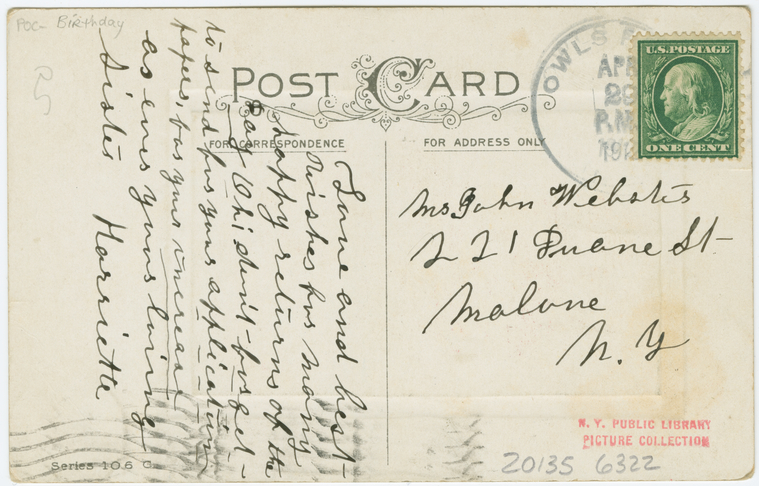 POC- Birthday
POST CARD
FOR CORRESPONDENCE
FOR ADDRESS ONLY
OWLS
APR
29
P.M.
191
U.S. POSTAGE
ONE CENT
Love and best
wishes for many
happy returns of the
day Oh! don't forget
to send for your application
papers, for your increase
as ever your loving
Sister Harriette
Mrs John Webster
221 Duane St
Malone
N. Y
N. Y. PUBLIC LIBRARY
PICTURE COLLECTION
20135 6322
Series 106 C